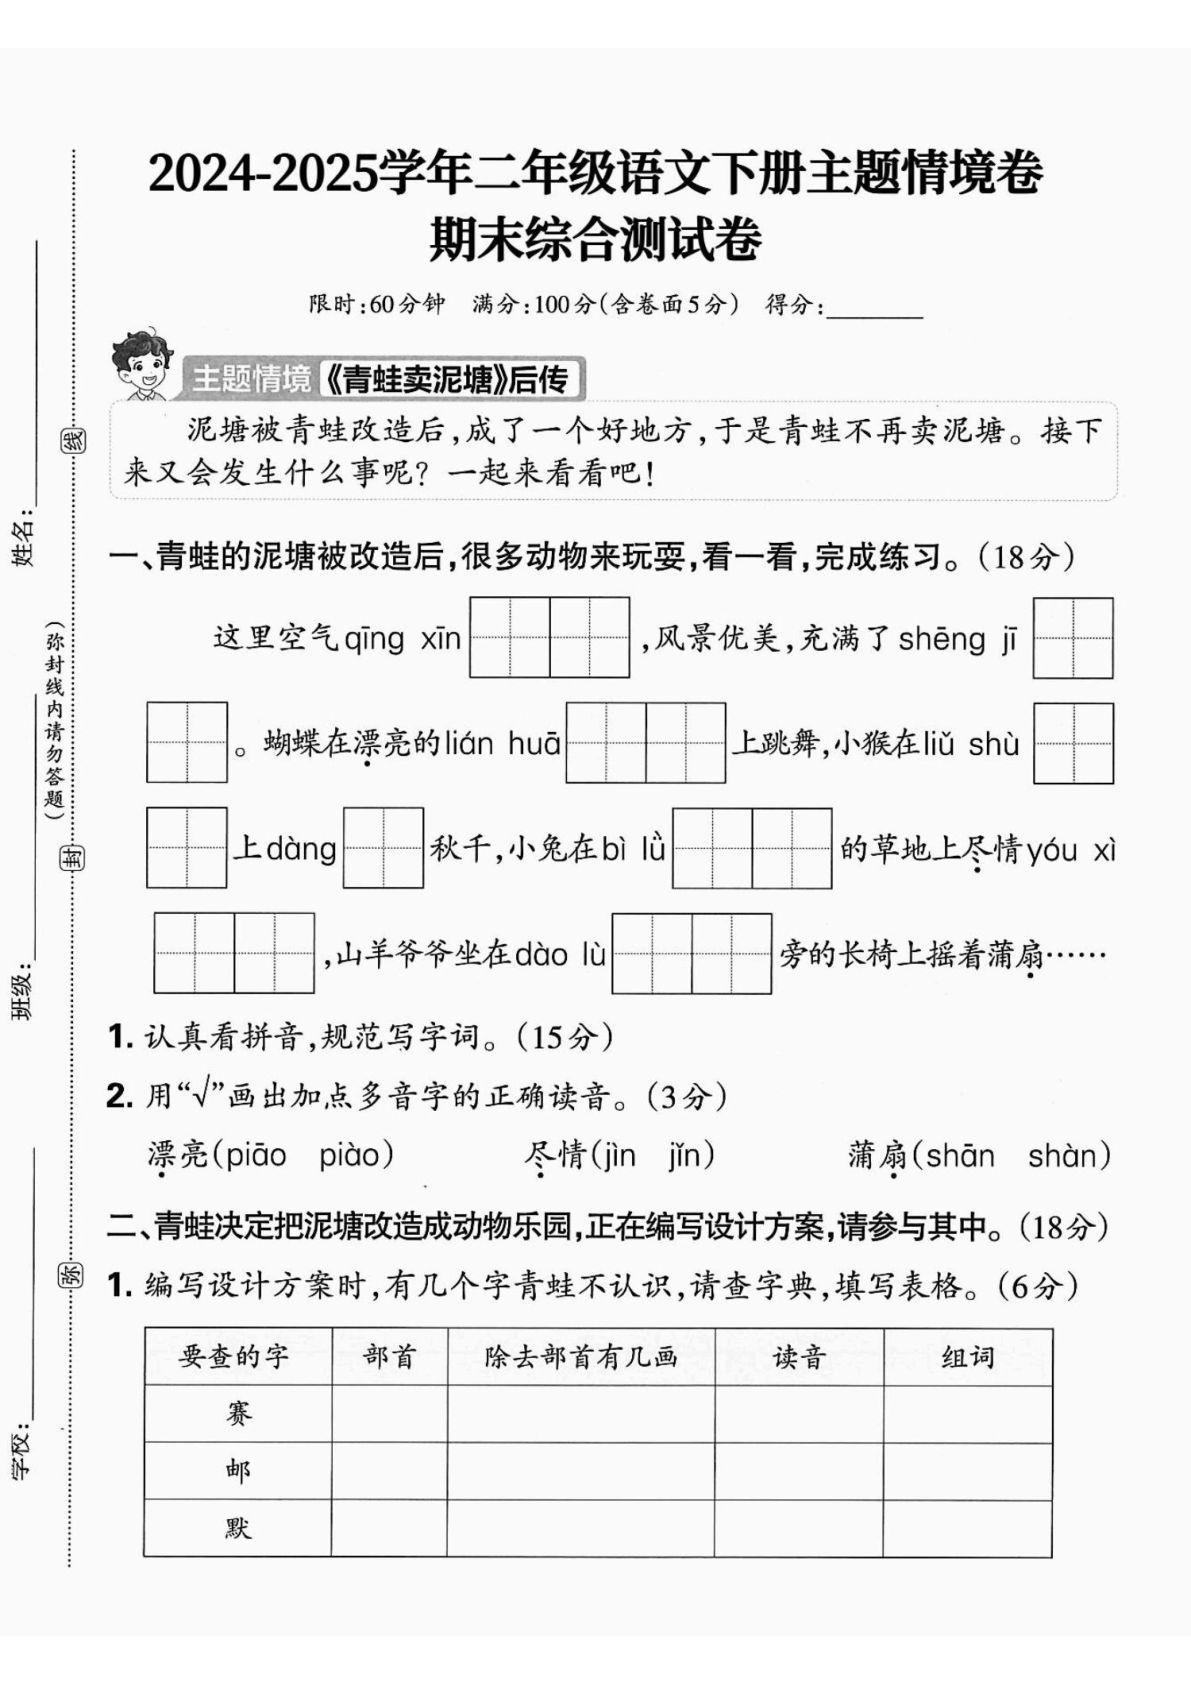 2024-2025学年二年级语文下册主题情境卷
期末综合测试卷
限时:60分钟 满分:100分(含卷面5分) 得分:
主题情境《青蛙卖泥塘》后传
泥塘被青蛙改造后,成了一个好地方,于是青蛙不再卖泥塘。接下
来又会发生什么事呢?一起来看看吧!
一、青蛙的泥塘被改造后,很多动物来玩耍,看一看,完成练习。(18分)
这里空气qīng xīn,风景优美,充满了shēng jī
。蝴蝶在漂亮的lián huā上跳舞,小猴在liǔ shù
上dàng秋千,小兔在bì lǜ的草地上尽情yóu xì
,山羊爷爷坐在dào lù旁的长椅上摇着蒲扇……
1. 认真看拼音,规范写字词。(15分)
2. 用“√”画出加点多音字的正确读音。(3分)
漂亮(piāo piào) 尽情(jìn jǐn) 蒲扇(shān shàn)
二、青蛙决定把泥塘改造成动物乐园,正在编写设计方案,请参与其中。(18分)
1. 编写设计方案时,有几个字青蛙不认识,请查字典,填写表格。(6分)
要查的字 部首 除去部首有几画 读音 组词
赛
邮
默
姓名:
班级:
学校:
(弥封线内请勿答题)
线
封
弥